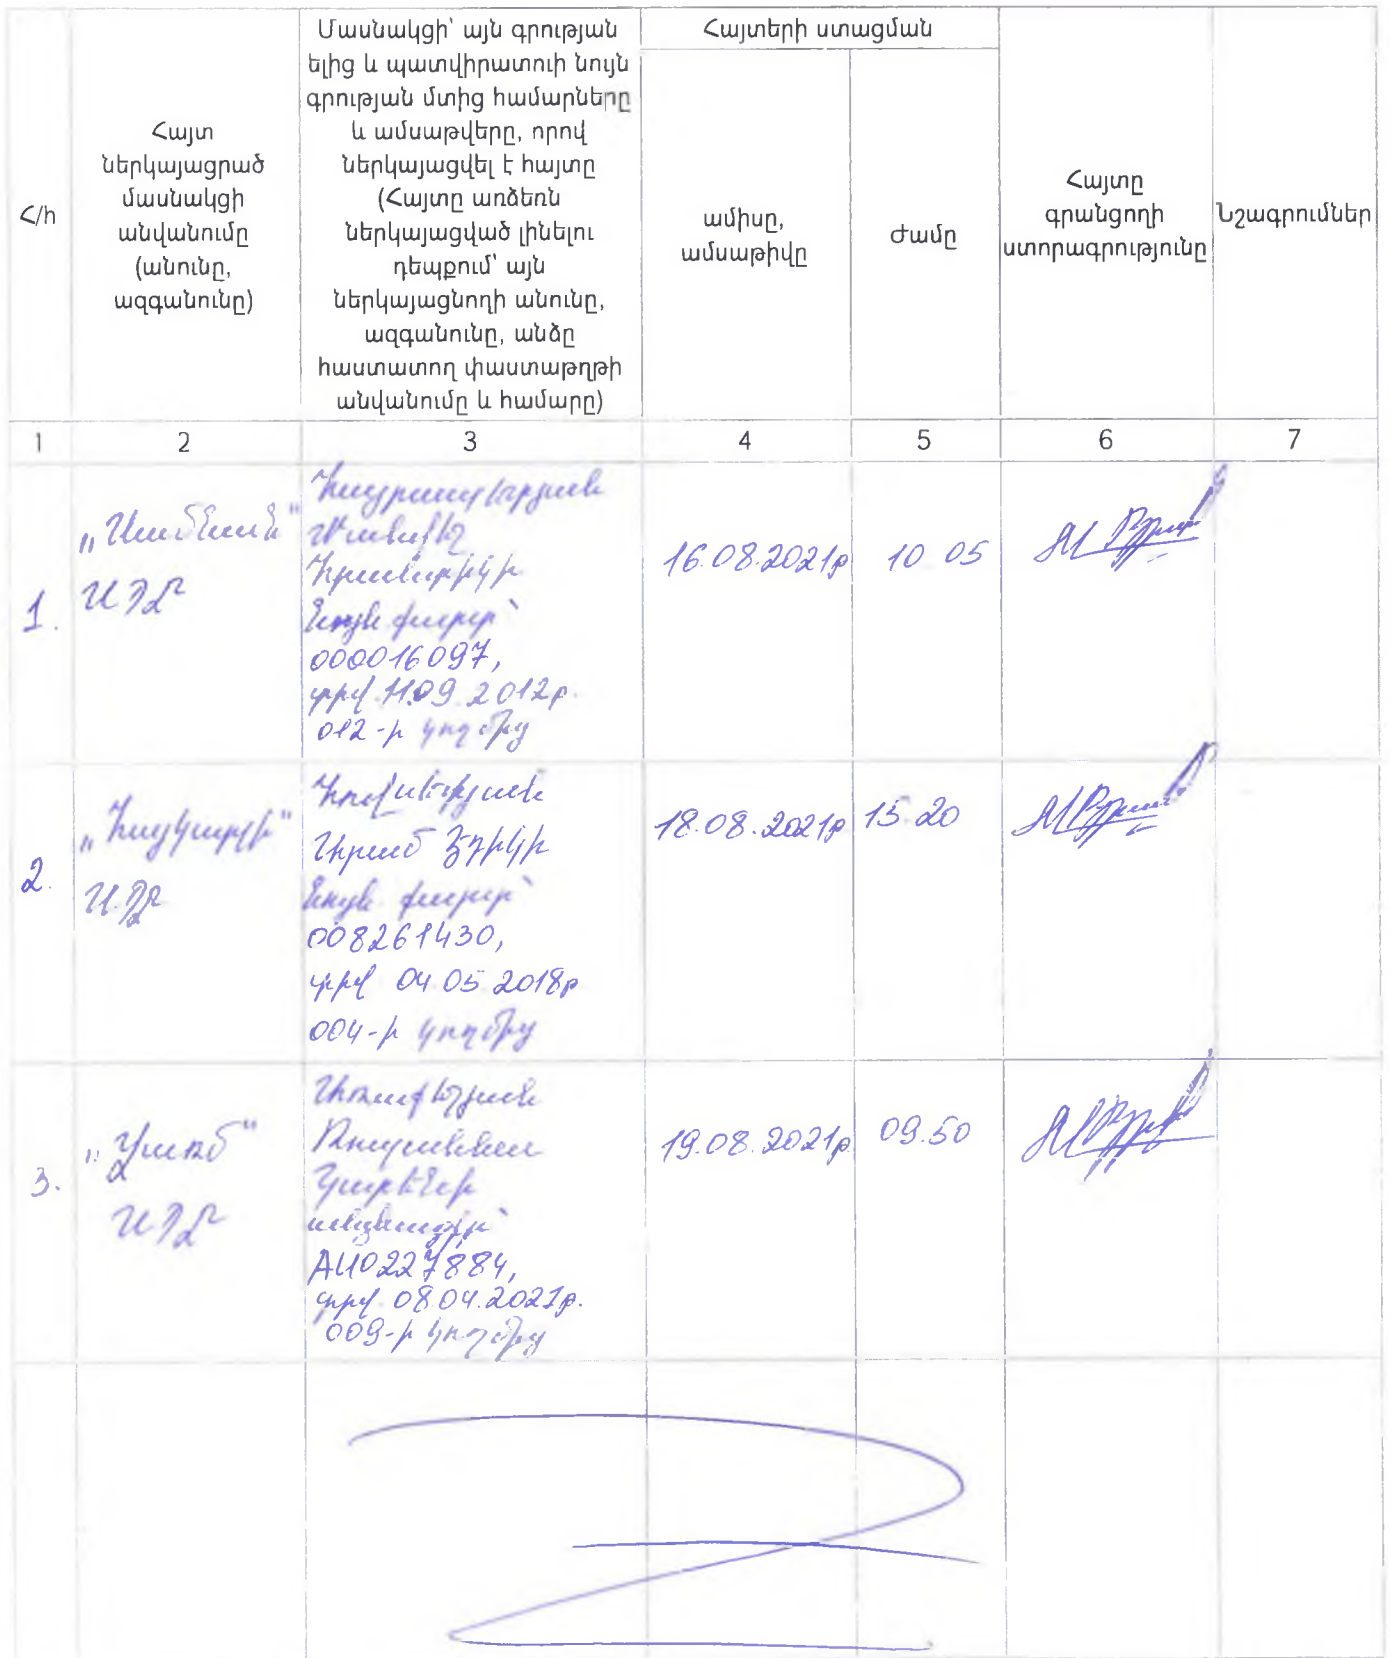 Հ/հ
Հայտ
ներկայացրած
մասնակցի
անվանումը
(անունը,
ազգանունը)
Մասնակցի՝ այն գրության
ելից և պատվիրատուի նույն
գրության մտից համարները
և ամսաթվերը, որով
ներկայացվել է հայտը
(Հայտը առձեռն
ներկայացված լինելու
դեպքում՝ այն
ներկայացնողի անունը,
ազգանունը, անձը
հաստատող փաստաթղթի
անվանումը և համարը)
Հայտերի ստացման
ամիսը,
ամսաթիվը
ժամը
Հայտը
գրանցողի
ստորագրությունը
Նշագրումներ
1 2 3 4 5 6 7
1.
ՍՊԸ
Հայրապետյան
Հրանտիկի
նույն. քարտ՝
000016097,
տրվ. 11.09.2012թ.
012-ի կողմից
16.08.2021թ
10 05
2.
„Հայկարլի"
ՍՊԸ
Հովսեփյան
Արամ Էդիկի
նույն. քարտ՝
008261430,
տրվ 04 05 2018թ
004-ի կողմից
18.08.2021թ
15 20
3.
ՍՊԸ
Առաքելյան
Կարենի
անձնագիր՝
AU0227884,
տրվ 08.04.2021թ.
009-ի կողմից
19.08.2021թ
09.50